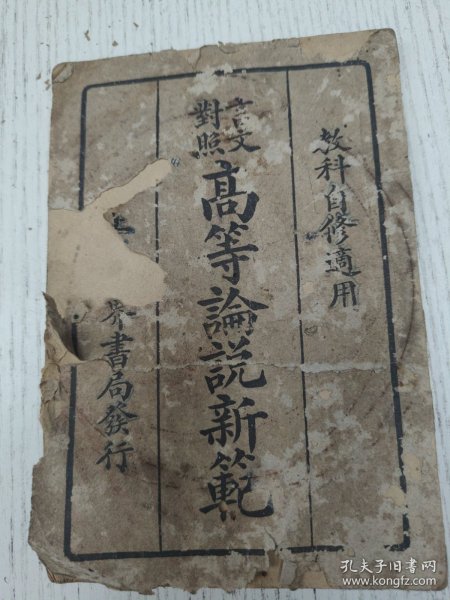 教科自修適用
言文對照
高等論說新範
界書局發行
孔夫子旧书网
www.kongfz.com